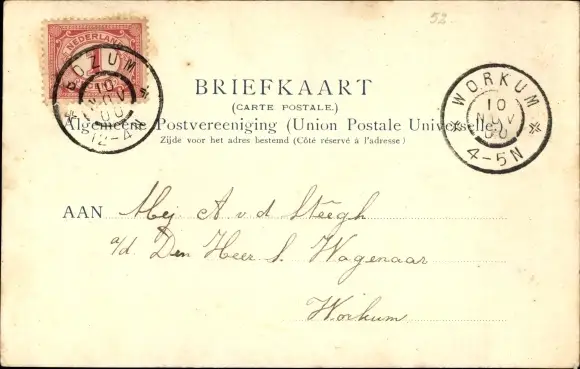 52.
NEDERLAND
1
BOZUM
10
NOV
00
12-4N
BRIEFKAART
(CARTE POSTALE.)
Algemeene Postvereeniging (Union Postale Universelle.)
Zijde voor het adres bestemd (Côté réservé à l'adresse)
WORKUM
10
NOV
00
4-5N
AAN Mej A. v. d. Steegh
a/d. Den Heer S. Wagenaar
Workum